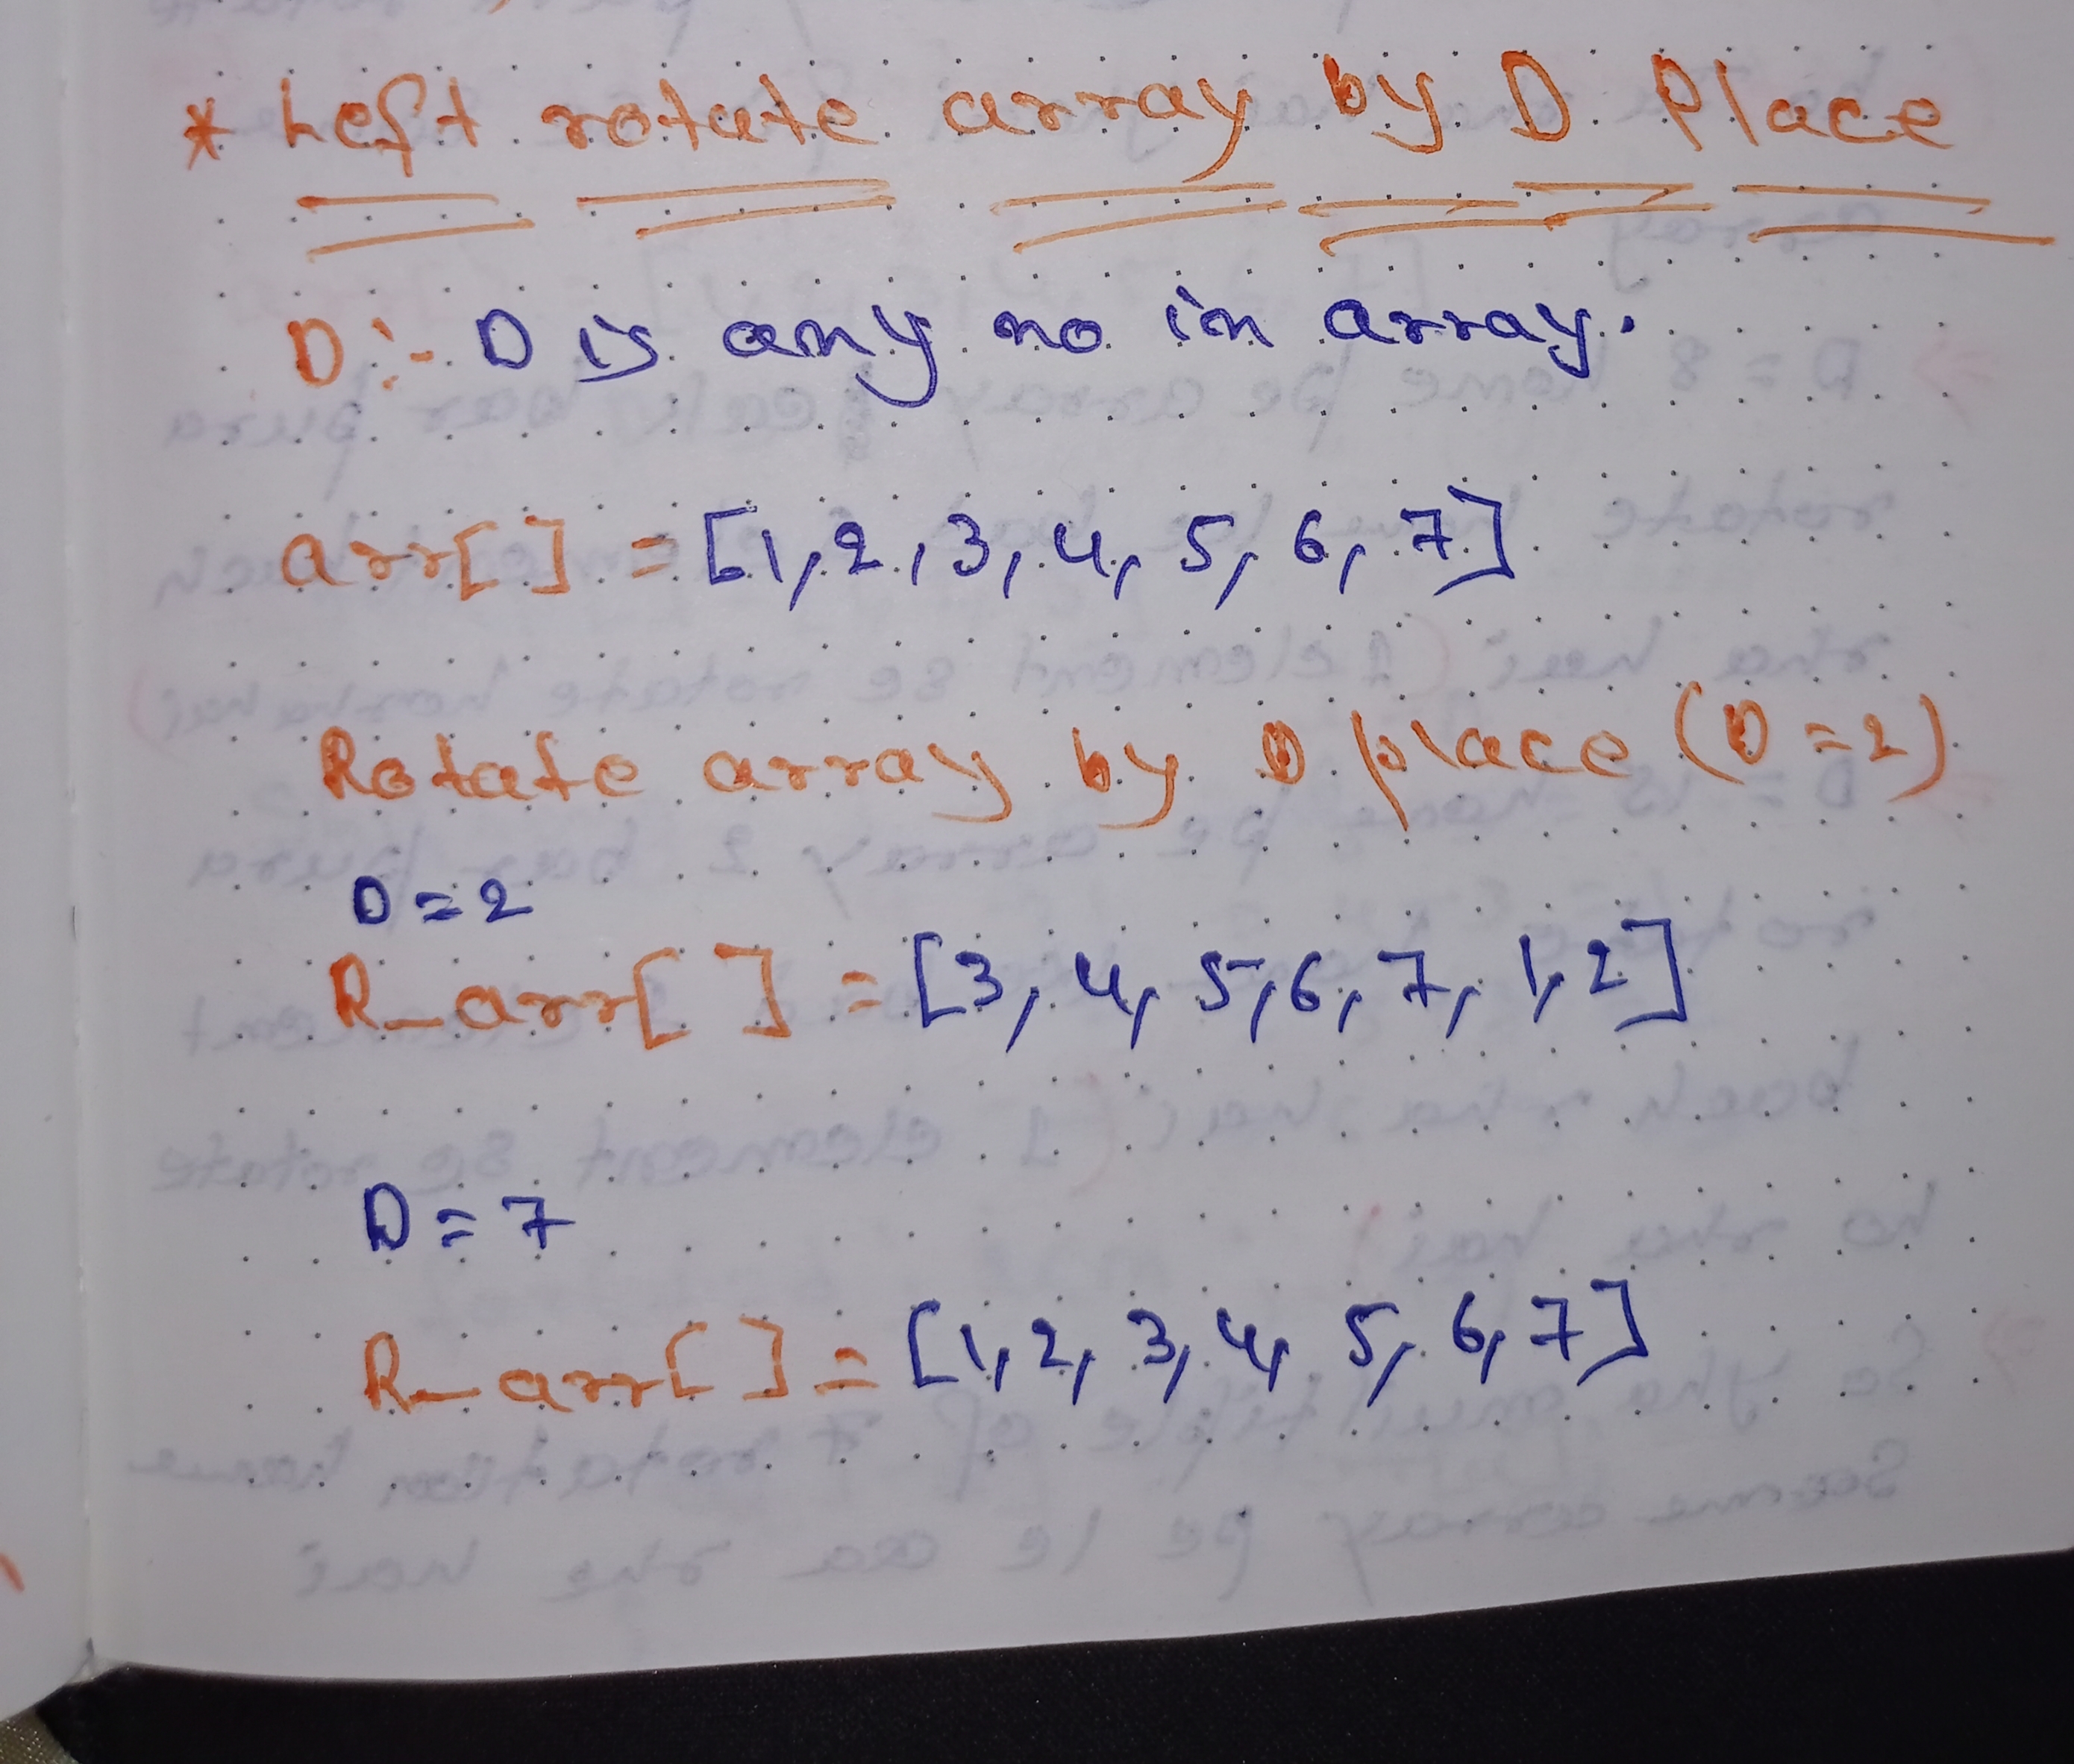 * Left rotate array by D Place
D :- D is any no in array.
arr[ ] = [1, 2, 3, 4, 5, 6, 7]
Rotate array by D place (D = 2)
D = 2
R_arr[ ] = [3, 4, 5, 6, 7, 1, 2]
D = 7
R_arr[ ] = [1, 2, 3, 4, 5, 6, 7]